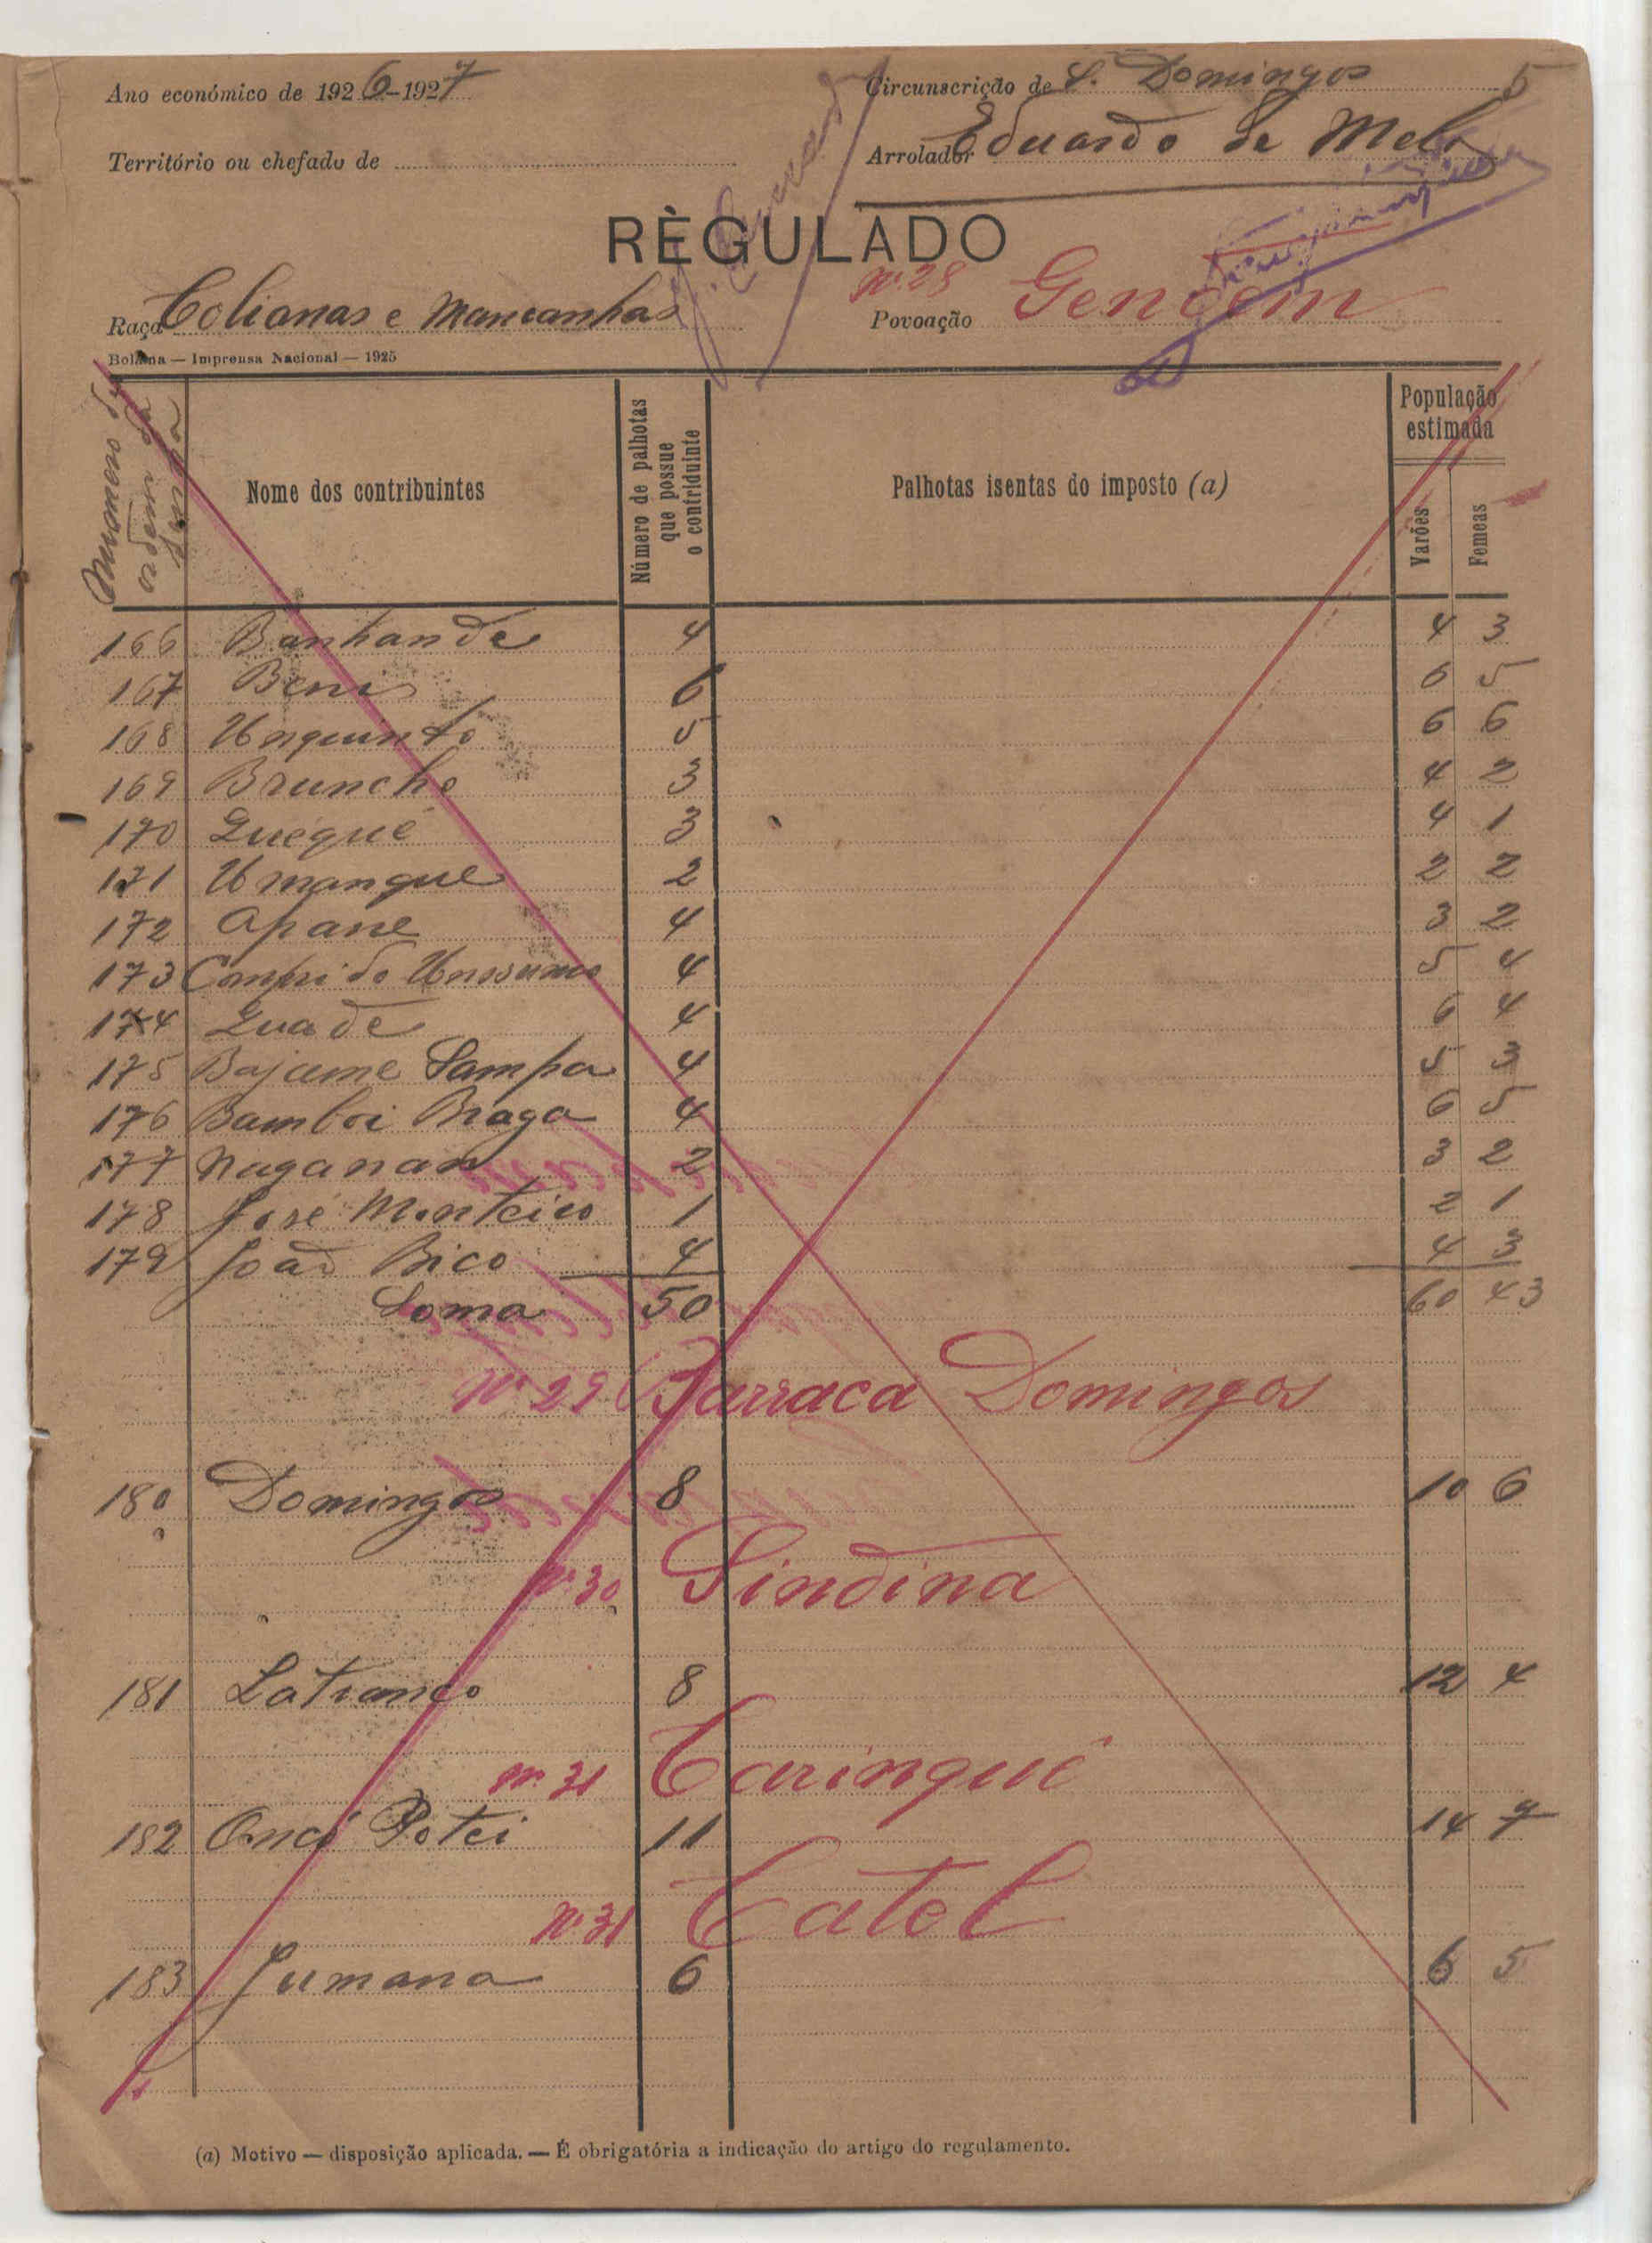 Ano económico de 1926-1927 Circunscrição de S. Domingos 5
Território ou chefado de Arrolador Eduardo de Melo
RÈGULADO
Raça Colianas e Mancanhas Povoação nº 28 Gengem
Bolama — Imprensa Nacional — 1925
Numero de ordem da
Nome dos contribuintes
Número de palhotas que possue o contriduinte
Palhotas isentas do imposto (a)
População estimada
Varões Femeas
166 Banhande 4 4 3
167 Benis 6 6 5
168 Unquinto 5 6 6
169 Brunche 3 4 2
170 Quéqué 3 4 1
171 Umangue 2 2 2
172 Apane 4 3 2
173 Comprido 4 5 4
174 Quade 4 6 4
175 Bajame Sampa 4 5 3
176 Bamboi Braga 4 6 5
177 Naganan 2 3 2
178 José Monteiro 1 2 1
179 João Bico 4 4 3
Soma 50 60 43
nº 29 Barraca Domingos
180 Domingos 8 10 6
nº 30 Sindina
181 8 12 4
nº 31 Caringué
182 Oncó Potei 11 14 7
nº 31 Catel
183 Jumana 6 6 5
(a) Motivo — disposição aplicada. — É obrigatória a indicação do artigo do regulamento.